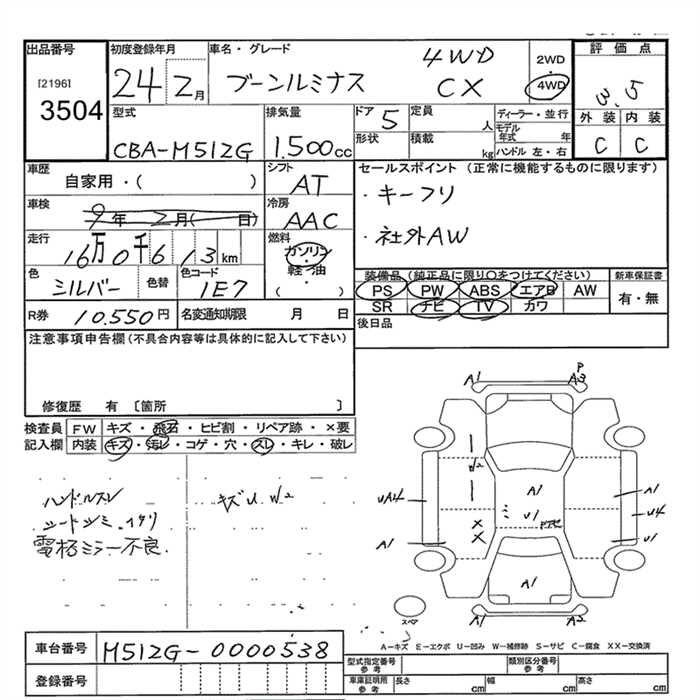 出品番号
[2196]
3504
初度登録年月
24 2月
車名・グレード
ブーンルミナス
4WD
CX
2WD
4WD
評価点
3.5
外装 内装
C C
型式
CBA-M512G
排気量
1.500cc
ドア
5
定員
人
形状
積載
kg
ディーラー・並行
モデル年式 年
ハンドル 左・右
車歴
自家用・( )
シフト
AT
車検
9年2月( 日)
冷房
AAC
走行
16万0千613km
燃料
ガソリン
・
軽油
( )
色
シルバー
色替
色コード
1E7
R券
10.550円
名変通知期限 月 日
セールスポイント(正常に機能するものに限ります)
・キーフリ
・社外AW
装備品(純正品に限り○をつけてください)
PS PW ABS エアB AW
SR ナビ TV カワ
新車保証書
有・無
後日品
注意事項申告欄(不具合内容等は具体的に記入して下さい)
修復歴 有 〔箇所 〕
検査員記入欄
FW キズ・飛石・ヒビ割・リペア跡・×要
内装 キズ・汚レ・コゲ・穴・スレ・キレ・破レ
ハンドルスレ
シートシミ・
電格ミラー不良
キズU W2
A1
P
A3
W2
A1
U1
ドアセ
UA4
A1
A1
U4
U1
×
×
A1
A1
A2
スペア
A-キズ E-エクボ U-凹み W-補修跡 S-サビ C-腐食 XX-交換済
車台番号
M512G-0000538
登録番号
型式指定番号
参考
類別区分番号
参考
車庫証明用
参考
長さ cm
幅 cm
高さ cm